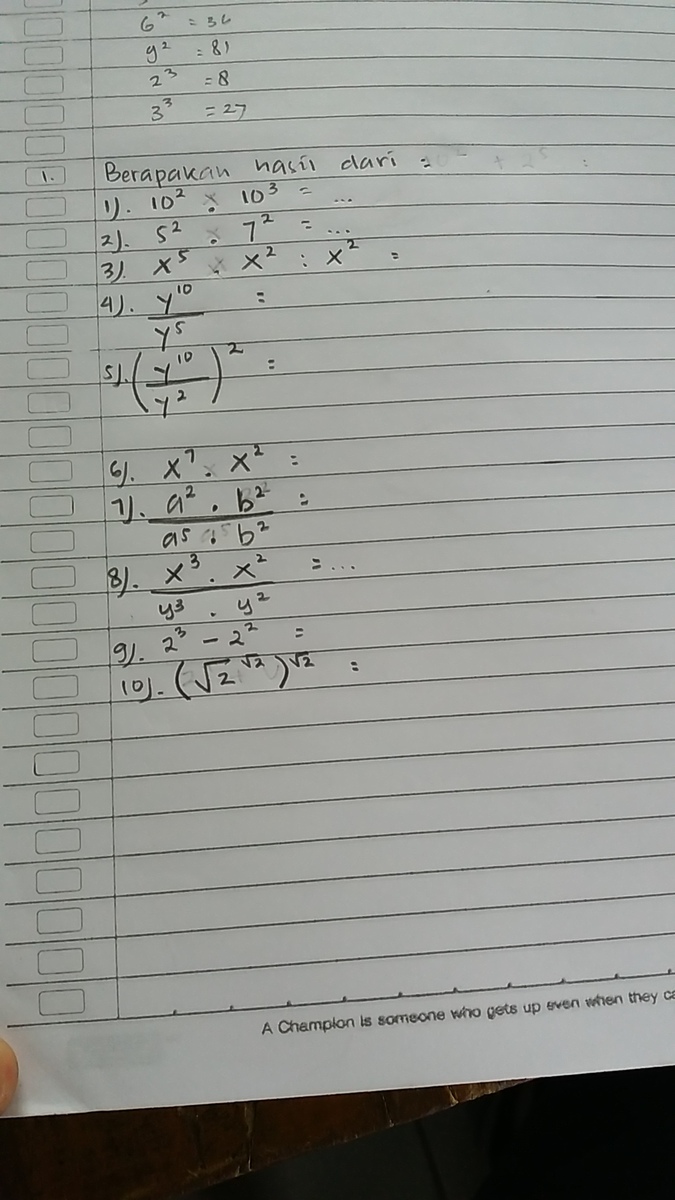 6² = 36
9² = 81
2³ = 8
3³ = 27
1. Berapakah hasil dari =
1). 10² . 10³ = ...
2). 5² . 7² = ...
3). x⁵ . x² : x² =
4). y¹⁰ =
y⁵
5). (y¹⁰/y²)² =
6). x⁷ . x² =
7). a² . b² =
a⁵ . b²
8). x³ . x² = ...
y³ . y²
9). 2³ - 2² =
10). (√2^√2)^√2 =
A Champion is someone who gets up even when they